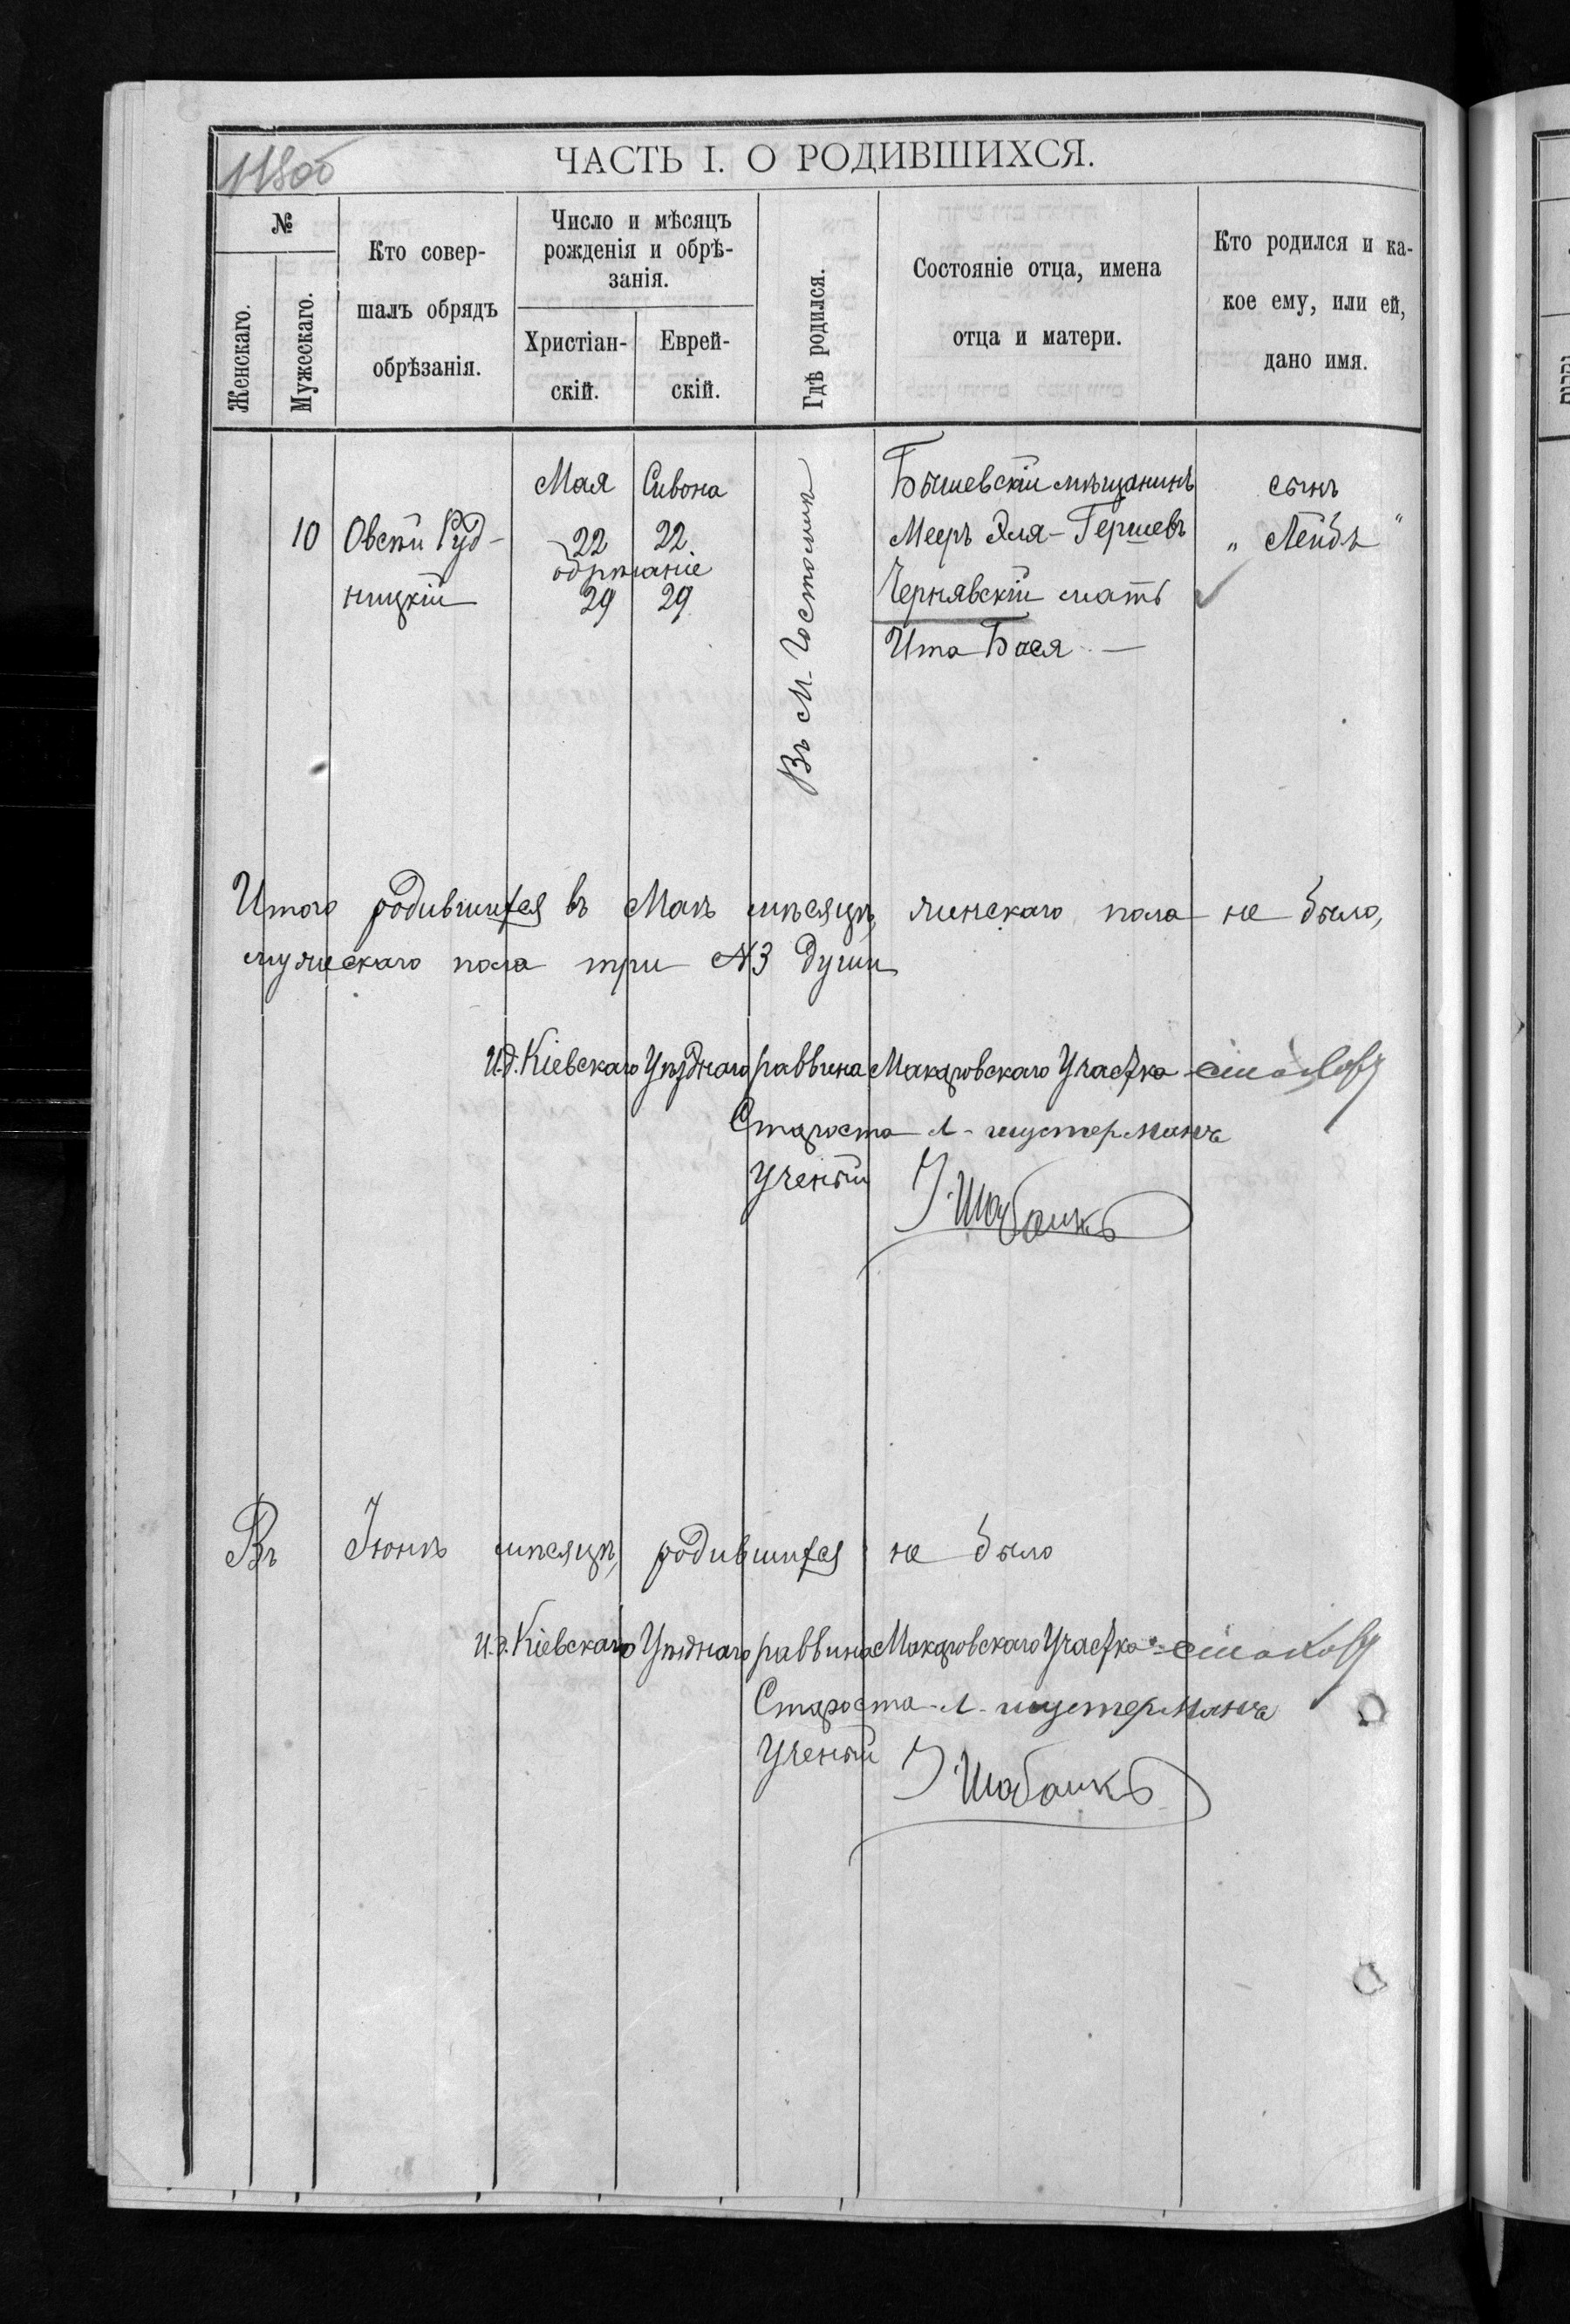 1180об
ЧАСТЬ I. О РОДИВШИХСЯ.
№
Женскаго.
Мужескаго.
Кто совер-
шалъ обрядъ
обрѣзанія.
Число и мѣсяцъ
рожденія и обрѣ-
занія.
Христіан-
скій.
Еврей-
скій.
Гдѣ родился.
Состояніе отца, имена
отца и матери.
Кто родился и ка-
кое ему, или ей,
дано имя.
Мая Сивона Бышевскій мѣщанинъ сынъ
10 Овсѣй Руд- 22 22 Мееръ Эля-Гершевъ „Лейбъ"
обрѣзаніе
ницкій 29 29 Чернявскій мать
Ита Бася —
Въ М. Гостомлѣ
Итого родившихся въ Маѣ мѣсяцѣ, женскаго пола не было,
мужескаго пола три №3 души
И.д. Кіевскаго Уѣзднаго раввина Макаровскаго Участка
Староста Л. Шустерманъ
Ученый І. Шабашкъ
Въ Іюнѣ мѣсяцѣ, родившихся не было
И.д. Кіевскаго Уѣзднаго раввина Макаровскаго Участка
Староста Л. Шустерманъ
Ученый І. Шабашкъ